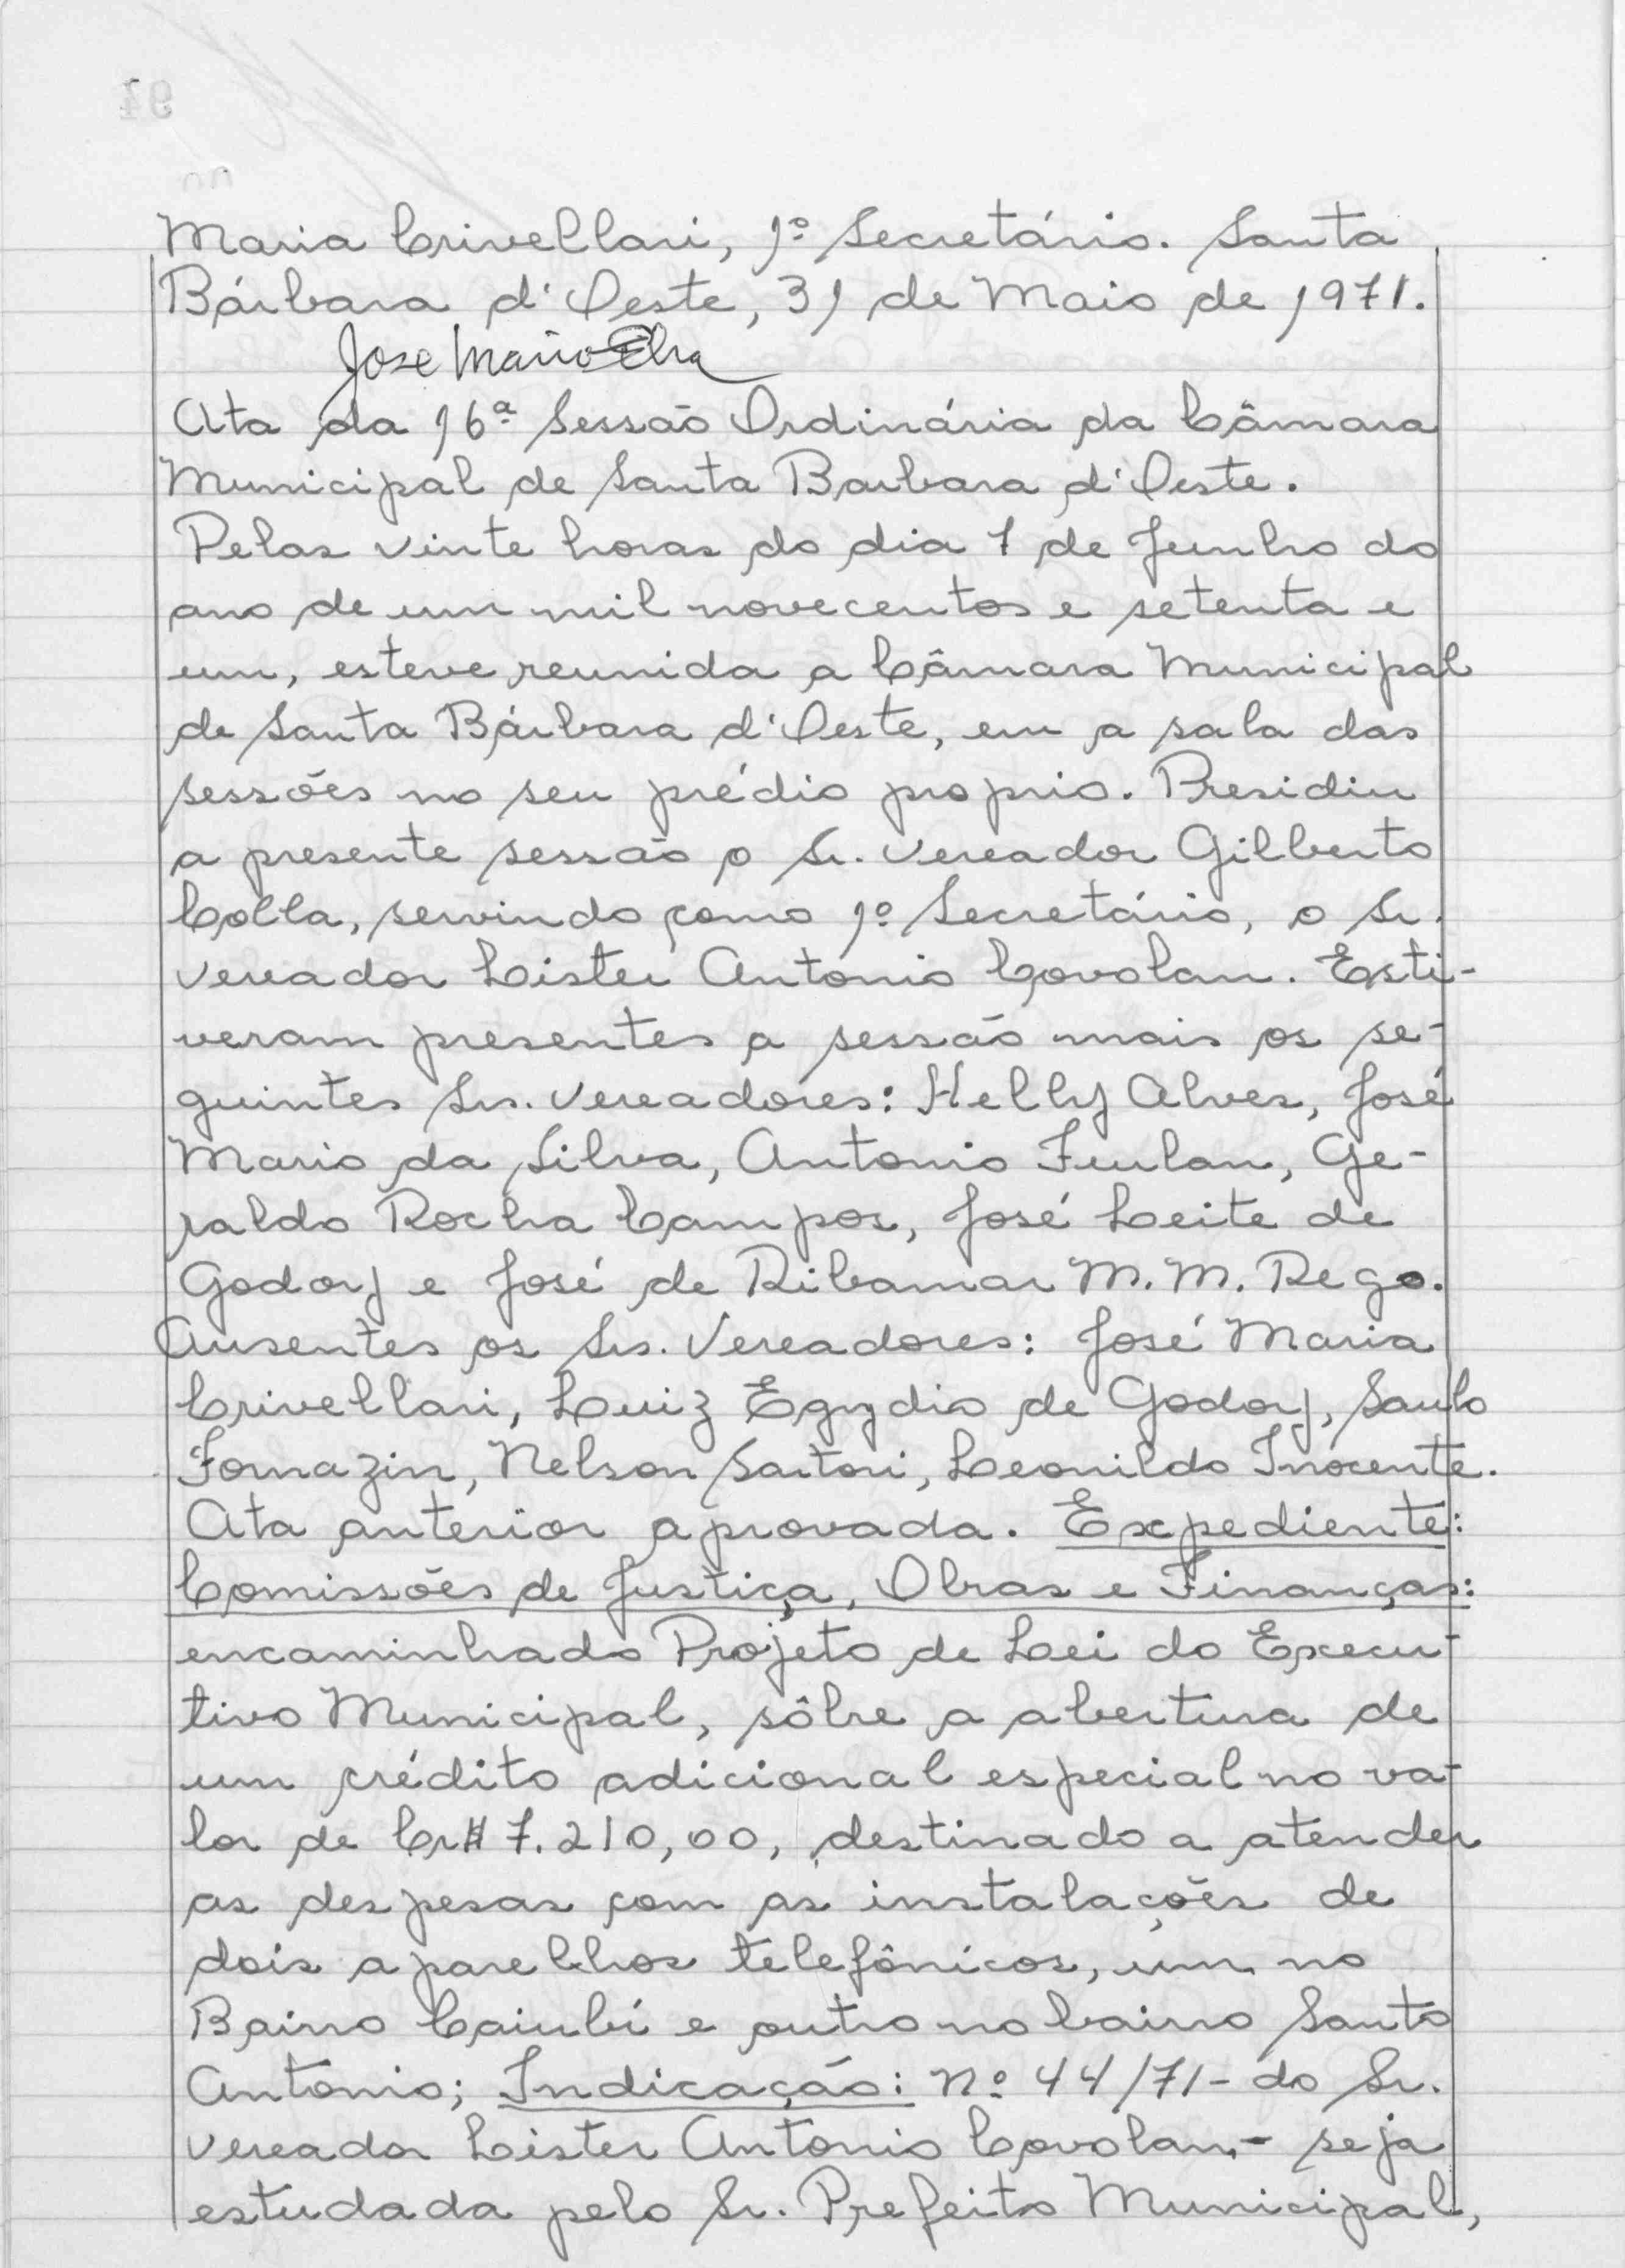 Maria Crivellari, 1º Secretário. Santa
Bárbara d'Oeste, 31 de Maio de 1971.
Jose Mario Silva
Ata da 16ª Sessão Ordinária da Câmara
Municipal de Santa Barbara d'Oeste.
Pelas vinte horas do dia 7 de Junho do
ano de um mil novecentos e setenta e
um, esteve reunida a Câmara Municipal
de Santa Bárbara d'Oeste, em a sala das
sessões no seu prédio proprio. Presidiu
a presente sessão o Sr. Vereador Gilberto
Colla, servindo como 1º Secretário, o Sr.
Vereador Lister Antonio Covolan. Esti-
veram presentes a sessão mais os se-
guintes Srs. Vereadores: Helly Alves, José
Mario da Silva, Antonio Furlan, Ge-
raldo Rocha Campos, José Leite de
Godoy e José de Ribamar M. M. Rego.
Ausentes os Srs. Vereadores: José Maria
Crivellari, Luiz Egydio de Godoy, Saulo
Fornazin, Nelson Sartori, Leonildo Inocente.
Ata anterior aprovada. Expediente:
Comissões de Justiça, Obras e Finanças:
encaminhado Projeto de Lei do Execu-
tivo Municipal, sôbre a abertura de
um crédito adicional especial no va-
lor de Cr$ 7.210,00, destinado a atender
as despesas com as instalações de
dois aparelhos telefônicos, um no
Bairro Caiubí e outro no bairro Santo
Antonio; Indicação: Nº 44/71- do Sr.
Vereador Lister Antonio Covolan,- seja
estudada pelo Sr. Prefeito Municipal,